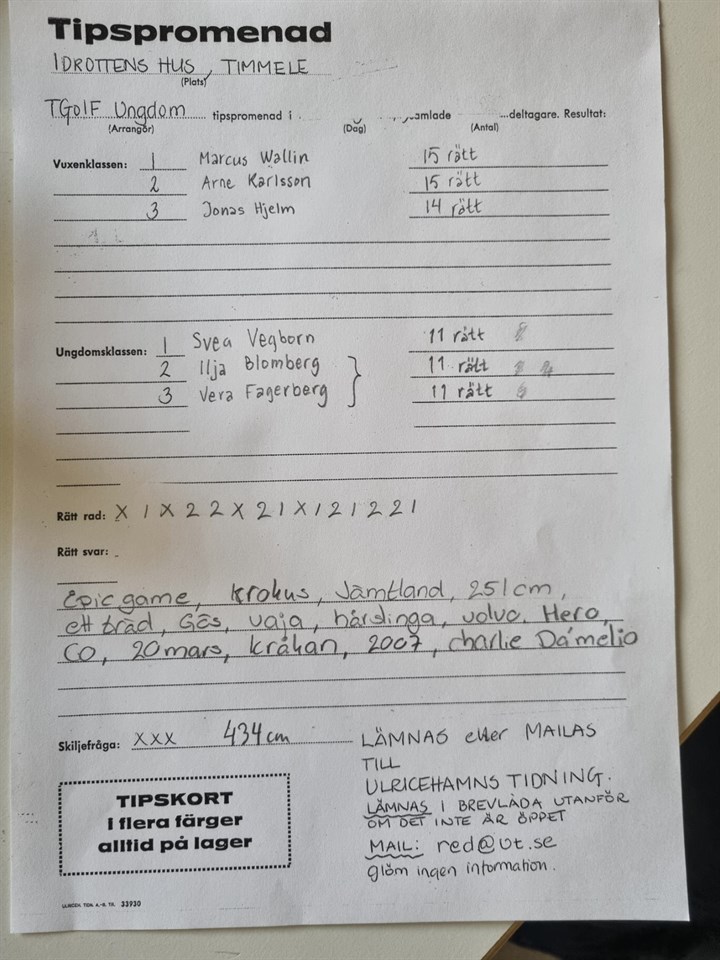 Tipspromenad
IDROTTENS HUS, TIMMELE
(Plats)
TGoIF Ungdom tipspromenad i amlade deltagare. Resultat:
(Arrangör) (Dag) (Antal)
Vuxenklassen: 1 Marcus Wallin 15 rätt
2 Arne Karlsson 15 rätt
3 Jonas Hjelm 14 rätt
Ungdomsklassen: 1 Svea Vegborn 11 rätt
2 Ilja Blomberg 11 rätt
3 Vera Fagerberg } 11 rätt
Rätt rad: X 1 X 2 2 X 2 1 X 1 2 1 2 2 1
Rätt svar:
Epic game, krokus, Jämtland, 251cm,
ett bräd, Gės, vaja, hårdinga, volvo, Hero,
CO, 20mars, kråkan, 2007, charlie Da'melio
Skiljefråga: XXX 434 cm
LÄMNAS eller MAILAS
TILL
ULRICEHAMNS TIDNING.
LÄMNAS I BREVLÅDA UTANFÖR
OM DET INTE ÄR ÖPPET
MAIL: red@ut.se
glöm ingen information.
TIPSKORT
i flera färger
alltid på lager
ULRICEH. TIDN. A.-B. TR. 33930